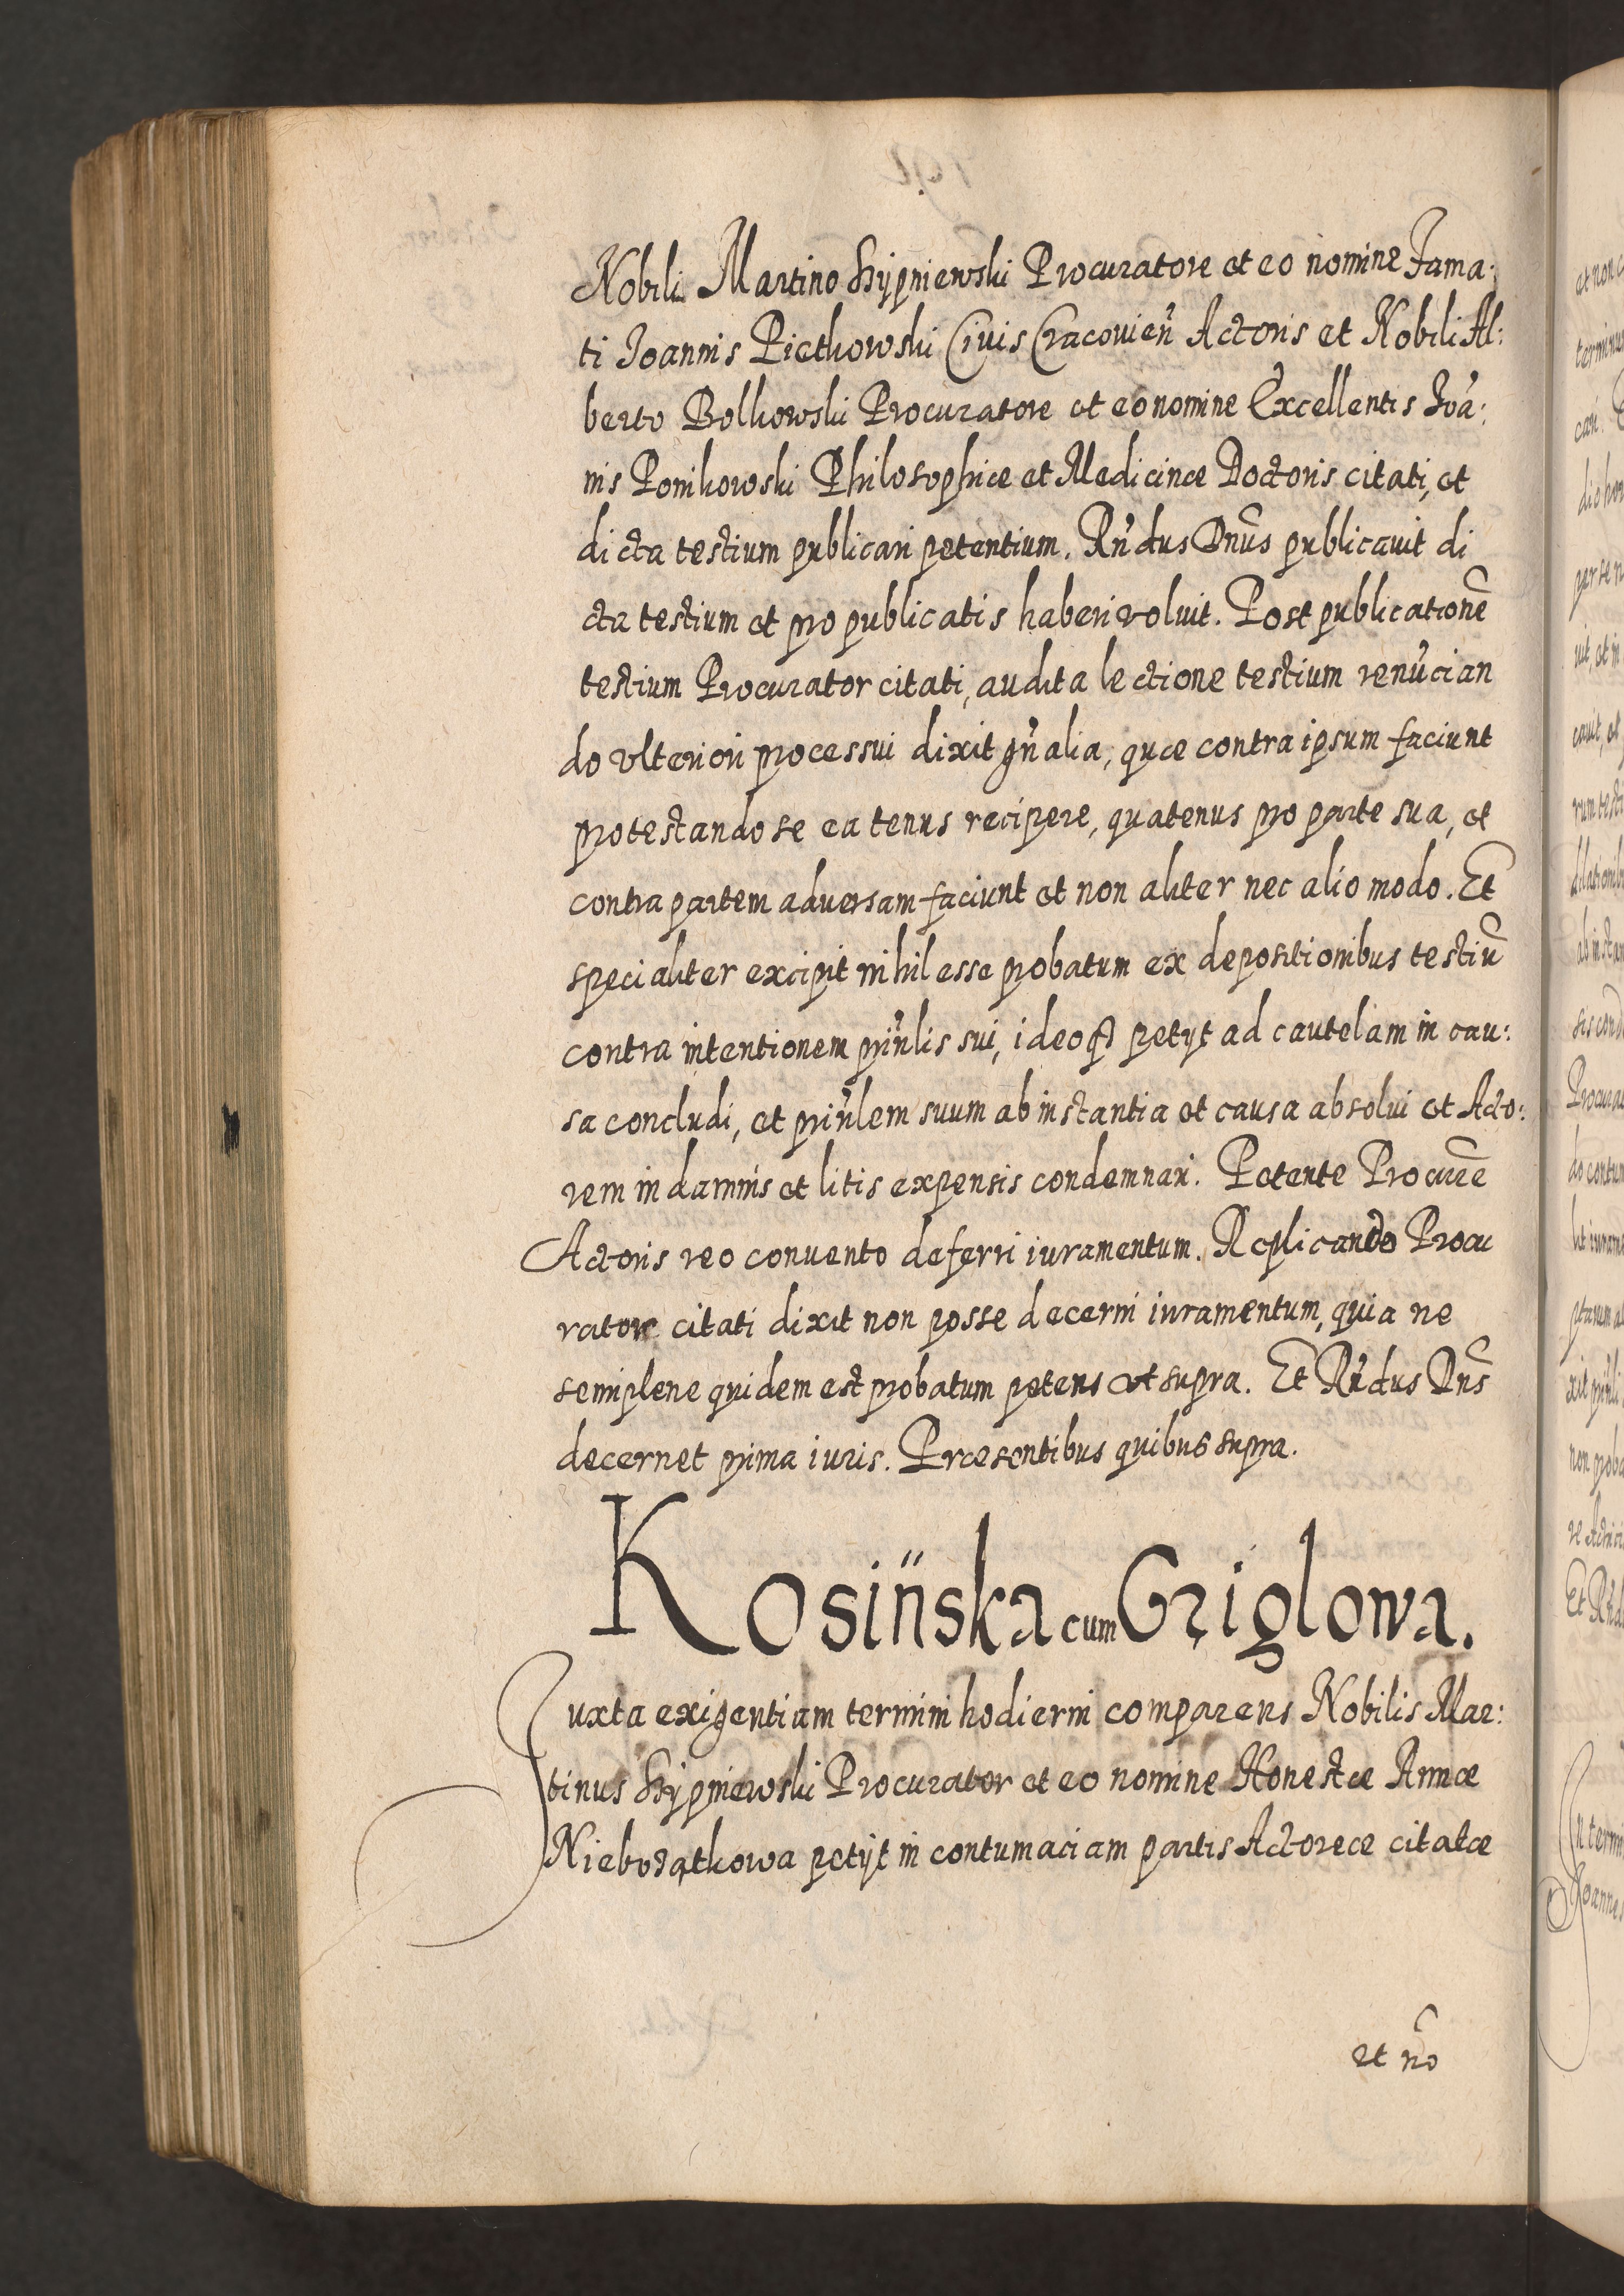 Nobili Martino Skypniewski Procuratore et eo nomine Fama:
ti Joannis Pietkowski Civis Cracovien̄ Actoris et Nobili Al:
berto Bolkowski Procuratore et eo nomine Excellentis Joā:
nis Ponikowski Philosophiæ et Medicinæ Doctoris citati, et
dicta testium publicari petentium. Rn̄dus Dn̄us publicavit di
cta testium et pro publicatis haberi voluit. Post publicationē
testium Procurator citati, audita lectione testium renūcian
do vlteriori processui dixit gn̄alia, quæ contra ipsum faciunt
protestando se ea tenus recipere, quatenus pro parte sua, et
contra partem adversam faciunt et non aliter nec alio modo. Et
specialiter excipit nihil esse probatum ex depositionibus testiū
contra intentionem prin̄lis sui, ideoq petyt ad cautelam in cau:
sa concludi, et prin̄lem suum ab instantia et causa absolui et Acto:
rem in damnis et litis expensis condemnari. Petente Procurē
Actoris reo convento deferri iuramentum. Replicando Procu
rator citati dixit non posse decerni iuramentum, quia ne
semiplene quidem est probatum petens vt supra. Et Rn̄dus Dn̄s
decernet prima iuris. Præsentibus quibus supra.
Kosińska cum Griglowa.
Juxta exigentiam termini hodierni comparens Nobilis Mar:
tinus Skypniewski Procurator et eo nomine Honestæ Annæ
Nieborątkowa petyt in contumaciam partis Actoreæ citatæ
et nō